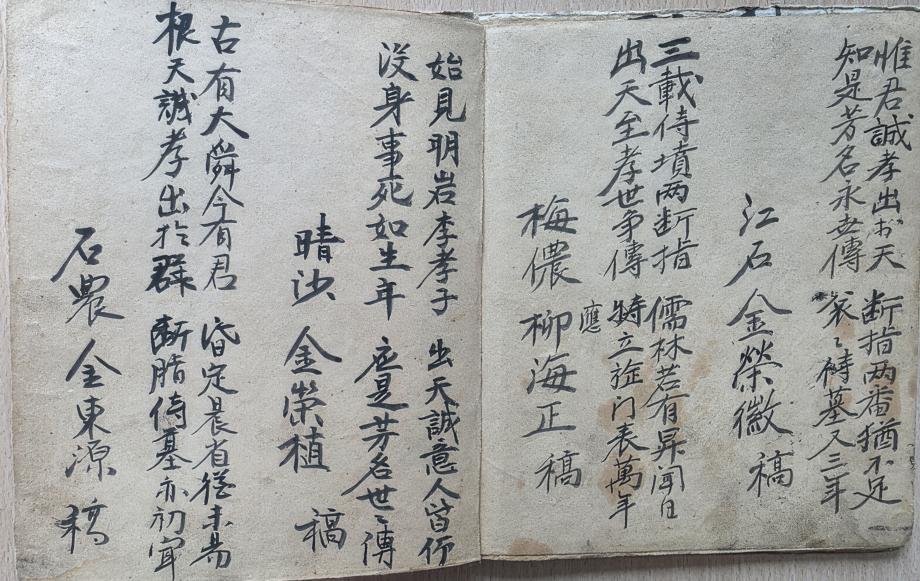 惟君誠孝出於天 断指两番猶不足
知是芳名永世傳 哀〻侍墓又三年
江石 金榮徽 稿
三載侍墳两断指 儒林若有异闻日
出天至孝世争傳 應特立旌门表萬年
梅儂 柳海正 稿
始見明岩李孝子 出天誠意人皆仰
没身事死如生年 应是芳名世〻傳
晴沙 金榮植 稿
古有大舜今有君 昏定晨省猶未易
根天誠孝出於群 断指侍墓亦初闻
石農 金東源 稿